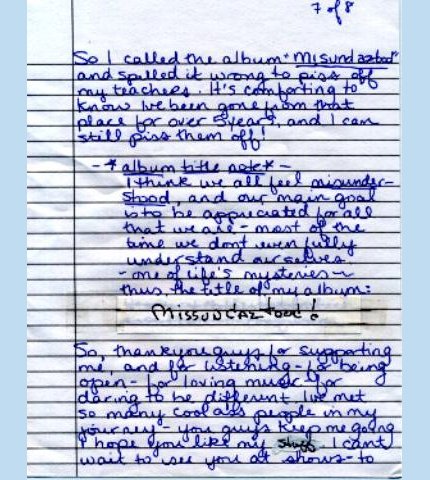 7 of 8
So I called the album "Misundaztood"
and spelled it wrong to piss off
my teachers. It's comforting to
know I've been gone from that
place for over 5 years, and I can
still piss them off!
- * album title note * -
I think we all feel misunder-
stood, and our main goal
is to be appreciated for all
that we are - most of the
time we dont even fully
understand ourselves.
- one of life's mysteries -
thus, the title of my album:
Missundaztood!
So, thankyou guys for supporting
me, and for listening - for being
open - for loving music - for
daring to be different. Ive met
so many coolass people in my
journey - you guys keep me going
I hope you like my stuff. I cant
wait to see you at shows - to